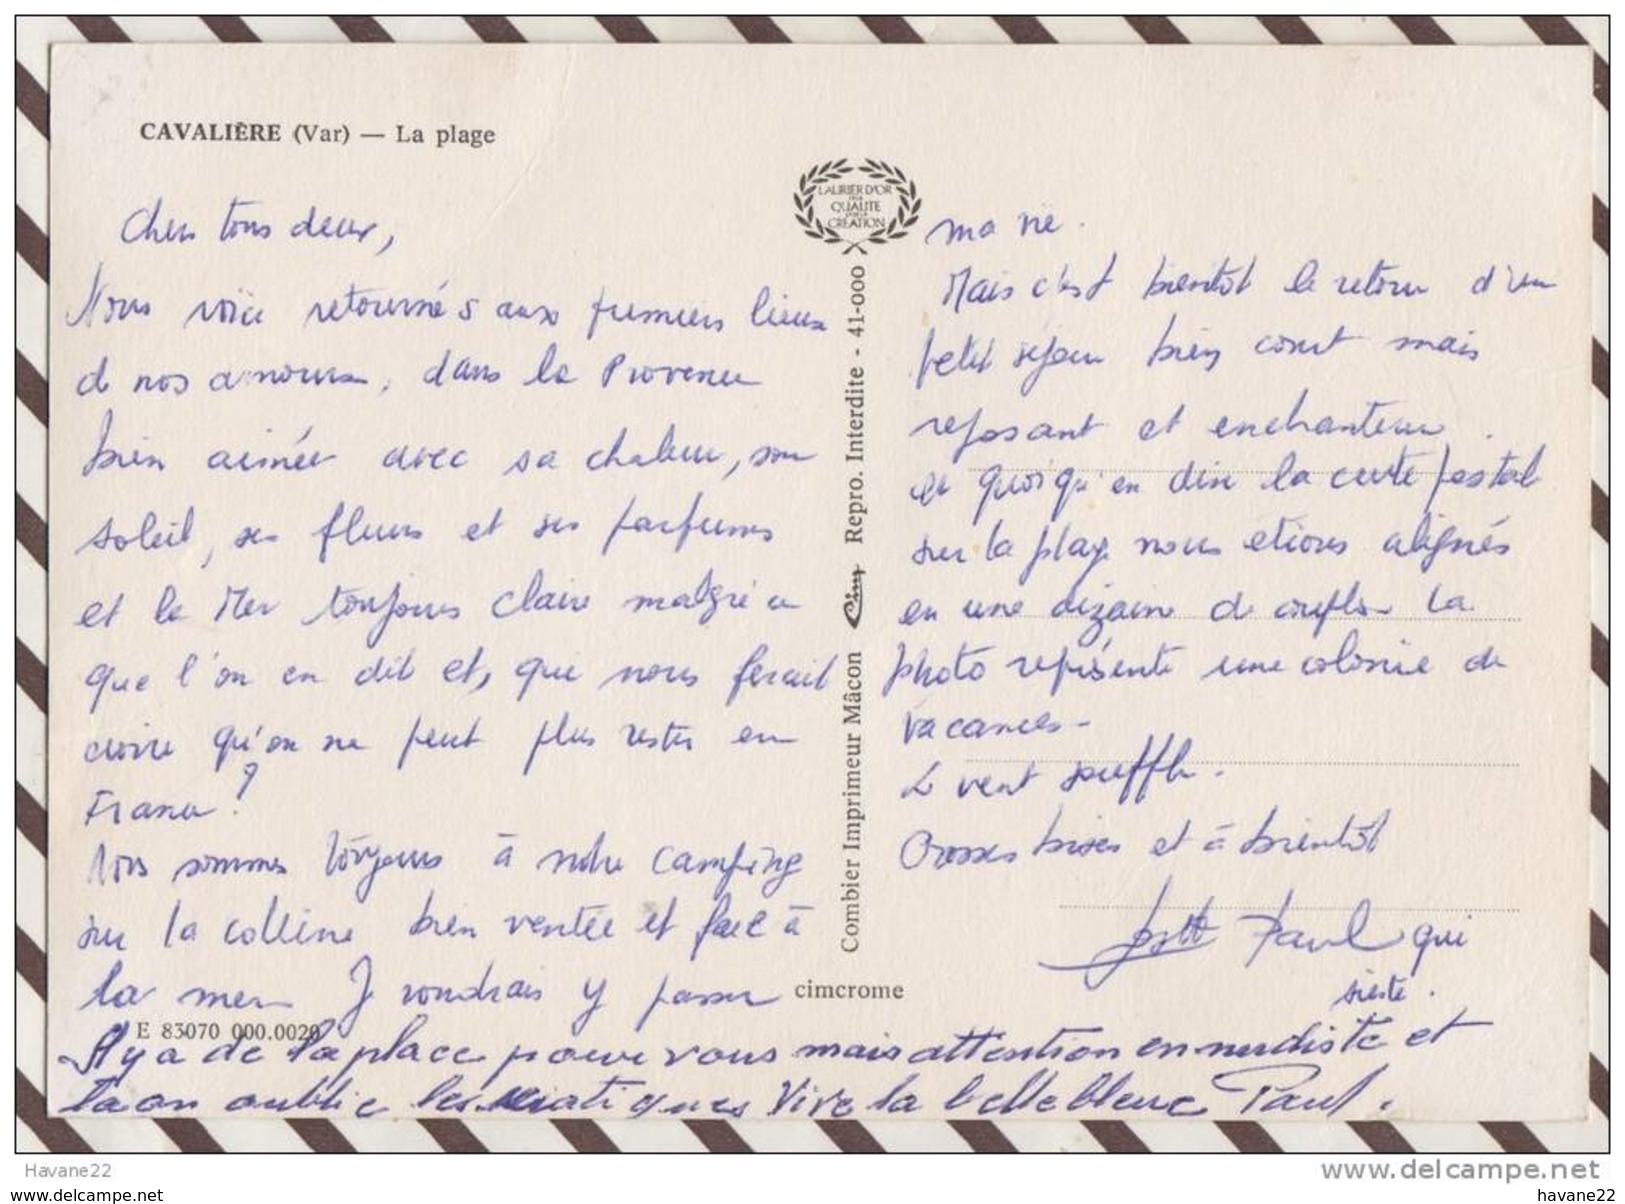 CAVALIÈRE (Var) — La plage
Chers tous deux,
Nous voici retournés aux premiers lieux
de nos amours, dans la Provence
bien aimée avec sa chaleur, son
soleil, ses fleurs et ses parfums
et la Mer toujours claire malgré ce
que l'on en dit et, que nous ferait
croire qu'on ne peut plus rester en
France ?
Nous sommes toujours à notre camping
sur la colline bien ventée et face à
la mer. J voudrais y passer
ma vie.
Mais c'est bientôt le retour d'un
petit séjour bien court mais
reposant et enchanteur.
et quoiqu'en dise la carte postal
sur la plage nous etions alignés
en une dizaine de couples La
photo représente une colonie de
vacances-
Le vent souffle.
Grosses bises et à bientôt
Paul qui
sieste.
Il y a de la place pour vous mais attention en nudiste et
la on oublie les sciatiques Vive la belle bleue Paul.
LAURIER D'OR
DE LA
QUALITE
DE LA
CREATION
Combier Imprimeur Mâcon Cim Repro. Interdite - 41-000
cimcrome
E 83070 000.0020
Havane22
www.delcampe.net
www.delcampe.net
havane22